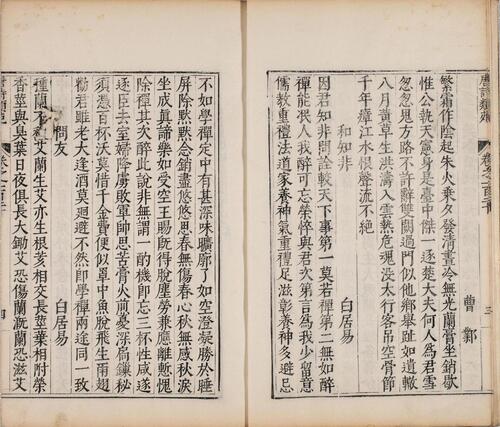 曹鄴
繁霜作陰起朱火乘夕發清晝冷無光蘭膏坐銷歇
惟公執天憲身是臺中傑一逐楚大夫何人為君雪
忽忽思方路不許辭雙闕過門似他鄉舉趾如遺轍
八月黃草生洪濤入雲熱危魂沒太行客吊空骨節
千年瘴江水恨聲流不絕
和知非 白居易
因君知非問詮較天下事第一莫若禪第二無如醉
禪能泯人我醉可忘榮悴與君次第言為我少留意
儒教重禮法道家養神氣重禮足滋彰養神多避忌
不如學禪定中有甚深味曠廓了如空澄凝勝於睡
屏除默默念銷盡悠悠思春無傷春心秋無感秋淚
坐成真諦樂如受空王賜既得脫塵勞兼應離慚愧
除禪其次醉此說非無謂一酌機即忘三杯性咸遂
逐臣去室婦降虜敗軍帥思苦膏火煎憂深扃鎖祕
須憑百杯沃莫惜千金費便似罩中魚脫飛生兩翅
勸君雖老大逢酒莫迴避不然即學禪兩途同一致
問友 白居易
種蘭不種艾蘭生艾亦生根荄相交長莖葉相附榮
香莖與臭葉日夜俱長大鋤艾恐傷蘭溉蘭恐滋艾